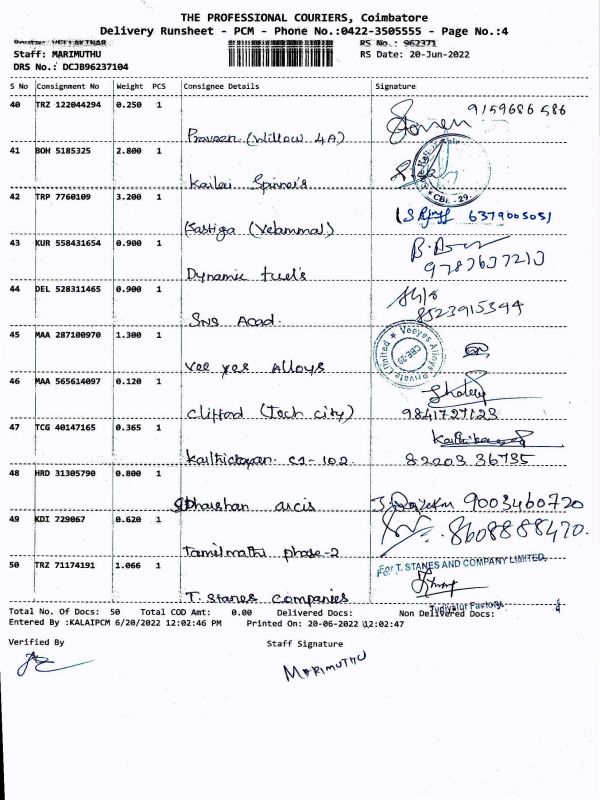 THE PROFESSIONAL COURIERS, Coimbatore
Delivery Runsheet - PCM - Phone No.:0422-3505555 - Page No.:4
RS No.: 962371
Staff: MARIMUTHU
RS Date: 20-Jun-2022
DRS No.: DCJB96237104
S No Consignment No Weight PCS Consignee Details Signature
40 TRZ 122044294 0.250 1
9159686586
Praveen (Willow 4A)
41 BOH 5185325 2.800 1
Spinners
CBE-29.
42 TRP 7760109 3.200 1
6379005051
Kastiga (Velammal)
43 KUR 558431654 0.900 1
9787637213
Dynamic fuel's
44 DEL 528311465 0.900 1
8523915394
SNS Acad.
45 MAA 287100970 1.300 1
Veeyes Alloys Private Limited
CBE-29
Vee yes Alloys
46 MAA 565614097 0.120 1
Clifford (Tech city) 9841727123
47 TCG 40147165 0.365 1
Karthickeyan. C1-102 82203 36735
48 HRD 31305790 0.800 1
Dharshan arcis 9003460720
49 KDI 729067 0.620 1
8608888420.
Tamilnathi phase-2
50 TRZ 71174191 1.066 1
For T. STANES AND COMPANY LIMITED,
T. Stanes Companies
Tudiyalur Factory
Total No. Of Docs: 50 Total COD Amt: 0.00 Delivered Docs: Non Delivered Docs:
Entered By :KALAIPCM 6/20/2022 12:02:46 PM Printed On: 20-06-2022 12:02:47
Verified By Staff Signature
MARIMUTHU